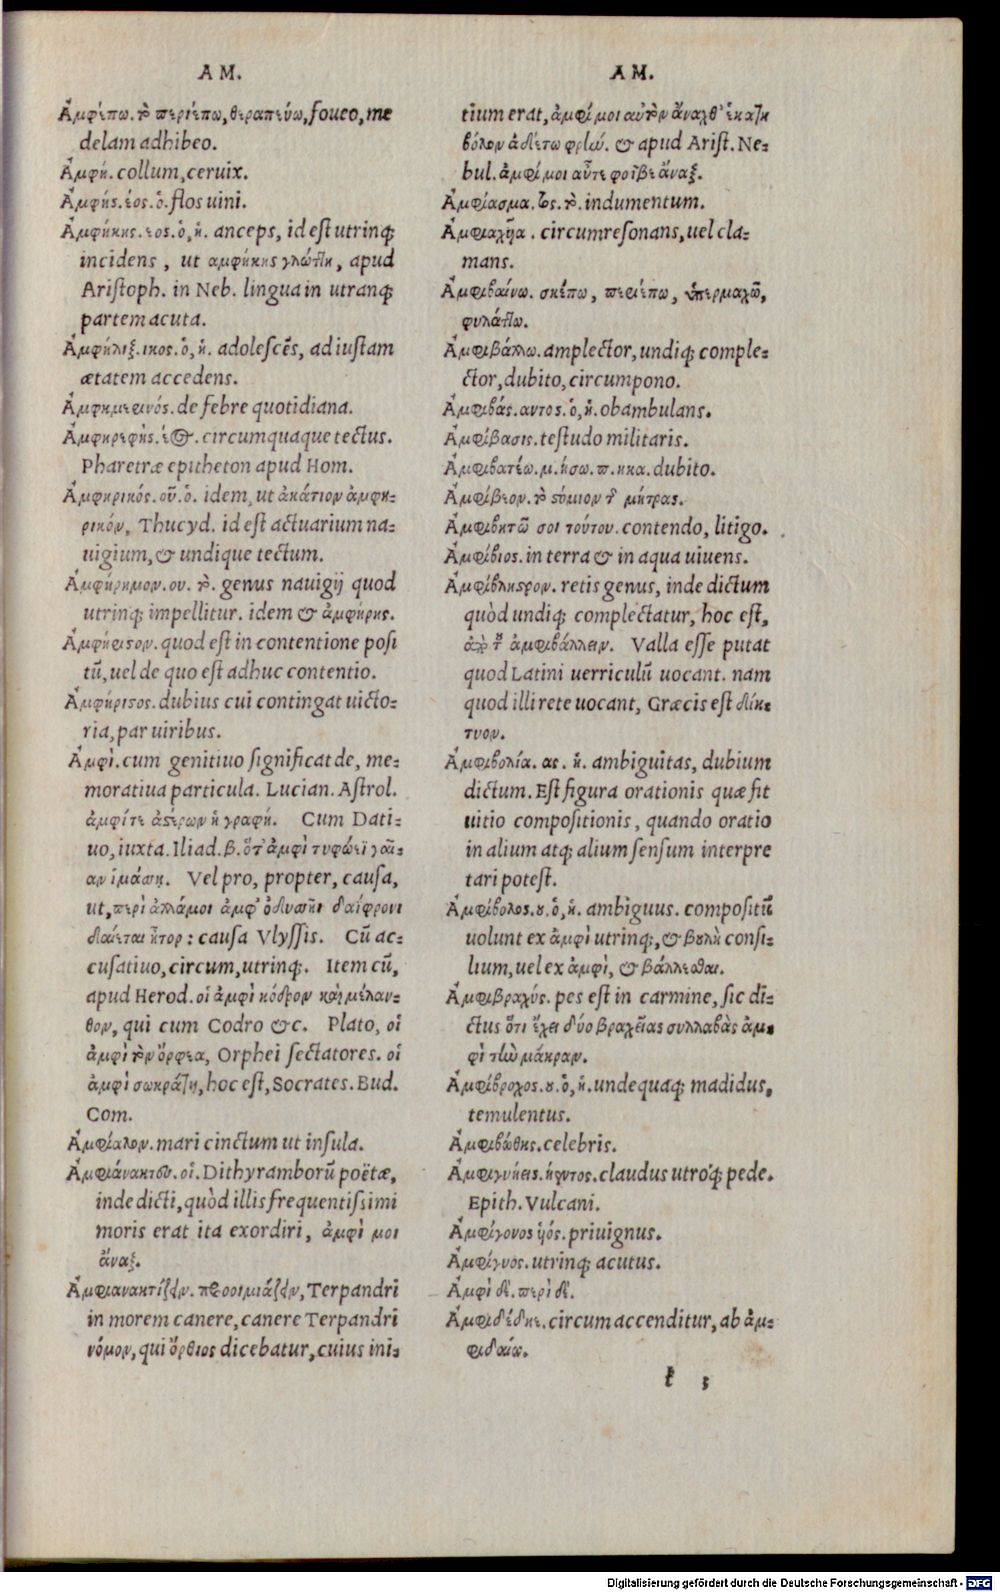 AM.
Ἀμφιέπω. τὸ περιέπω, θεραπεύω, foueo, me
delam adhibeo.
Ἀμφή. collum, ceruix.
Ἀμφής. έος. ὁ. flos uini.
Ἀμφήκης. εος. ὁ, ἡ. anceps, id est utrinq;
incidens, ut αμφήκης γλώττη, apud
Aristoph. in Neb. lingua in utranq;
partem acuta.
Ἀμφήλιξ. ικος. ὁ, ἡ. adolescẽs, ad iustam
ætatem accedens.
Ἀμφημερινός. de febre quotidiana.
Ἀμφηρεφής. έος. circumquaque tectus.
Pharetræ epitheton apud Hom.
Ἀμφηρικός. οῦ. ὁ. idem, ut ἀκάτιον ἀμφη-
ρικόν, Thucyd. id est actuarium na-
uigium, & undique tectum.
Ἀμφήρημον. ου. τὸ. genus nauigij quod
utrinq; impellitur. idem & ἀμφήρης.
Ἀμφήριστον. quod est in contentione posi
tũ, uel de quo est adhuc contentio.
Ἀμφήριστος. dubius cui contingat uicto-
ria, par uiribus.
Ἀμφὶ. cum genitiuo significat de, me-
moratiua particula. Lucian. Astrol.
ἀμφίτε ἀστέρων ἡ γραφή. Cum Dati-
uo, iuxta. Iliad. β. ὅτ' ἀμφὶ τυφωέϊ γαῖ-
αν ἱμάσσῃ. Vel pro, propter, causa,
ut, περὶ ἀλλάμοι ἀμφ' ὀδυσσῆι δαίφρονι
δαίεται ἦτορ: causa Vlyssis. Cũ ac-
cusatiuo, circum, utrinq;. Item cũ,
apud Herod. οἱ ἀμφὶ κόδρον καὶ μέλαν-
θον, qui cum Codro &c. Plato, οἱ
ἀμφὶ τὸν ὄρφεα, Orphei sectatores. οἱ
ἀμφὶ σωκράτη, hoc est, Socrates. Bud.
Com.
Ἀμφίαλον. mari cinctum ut insula.
Ἀμφιάνακτου. οἱ. Dithyramborũ poëtæ,
inde dicti, quòd illis frequentissimi
moris erat ita exordiri, ἀμφὶ μοι
ἄναξ.
Ἀμφιανακτίζειν. προοιμιάζειν, Terpandri
in morem canere, canere Terpandri
νόμον, qui ὄρθιος dicebatur, cuius ini-
AM.
tium erat, ἀμφί μοι αὐτὸν ἄναχθ' ἑκατη
βόλον ἀδέτω φρὶω. & apud Arist. Ne-
bul. ἀμφί μοι αὖτε φοῖβε ἄναξ.
Ἀμφίασμα. τος. τὸ. indumentum.
Ἀμφιαχῆα. circumresonans, uel cla-
mans.
Ἀμφιβαίνω. σκέπω, περιέπω, ὑπερμαχῶ,
φυλάττω.
Ἀμφιβάλλω. amplector, undiq; comple-
ctor, dubito, circumpono.
Ἀμφιβάς. αντος. ὁ, ἡ. obambulans.
Ἀμφίβασις. testudo militaris.
Ἀμφιβατέω. μ. ήσω. π. ηκα. dubito.
Ἀμφίβιον. τὸ στόμιον τῆς μήτρας.
Ἀμφιβητῶ σοι τούτου. contendo, litigo.
Ἀμφίβιος. in terra & in aqua uiuens.
Ἀμφίβληστρον. retis genus, inde dictum
quòd undiq; complectatur, hoc est,
ἀπὸ τοῦ ἀμφιβάλλειν. Valla esse putat
quod Latini uerriculũ uocant. nam
quod illi rete uocant, Græcis est δίκ-
τυον.
Ἀμφιβολία. ας. ἡ. ambiguitas, dubium
dictum. Est figura orationis quæ fit
uitio compositionis, quando oratio
in alium atq; alium sensum interpre
tari potest.
Ἀμφίβολος. ου. ὁ, ἡ. ambiguus. compositũ
uolunt ex ἀμφὶ utrinq;, & βουλὴ consi-
lium, uel ex ἀμφὶ, & βάλλεσθαι.
Ἀμφιβραχύς. pes est in carmine, sic di-
ctus ὅτι ἔχει δύο βραχείας συλλαβὰς ἀμ-
φὶ τὴν μάκραν.
Ἀμφίβροχος. ου. ὁ, ἡ. undequaq; madidus,
temulentus.
Ἀμφιβώθης. celebris.
Ἀμφιγυήεις. ήεντος. claudus utroq; pede.
Epith. Vulcani.
Ἀμφίγονος ὑός. priuignus.
Ἀμφίγυος. utrinq; acutus.
Ἀμφὶ δὲ. περὶ δὲ.
Ἀμφιδέδηε. circum accenditur, ab ἀμ-
φιδαίω.
k 3
Digitalisierung gefördert durch die Deutsche Forschungsgemeinschaft - DFG